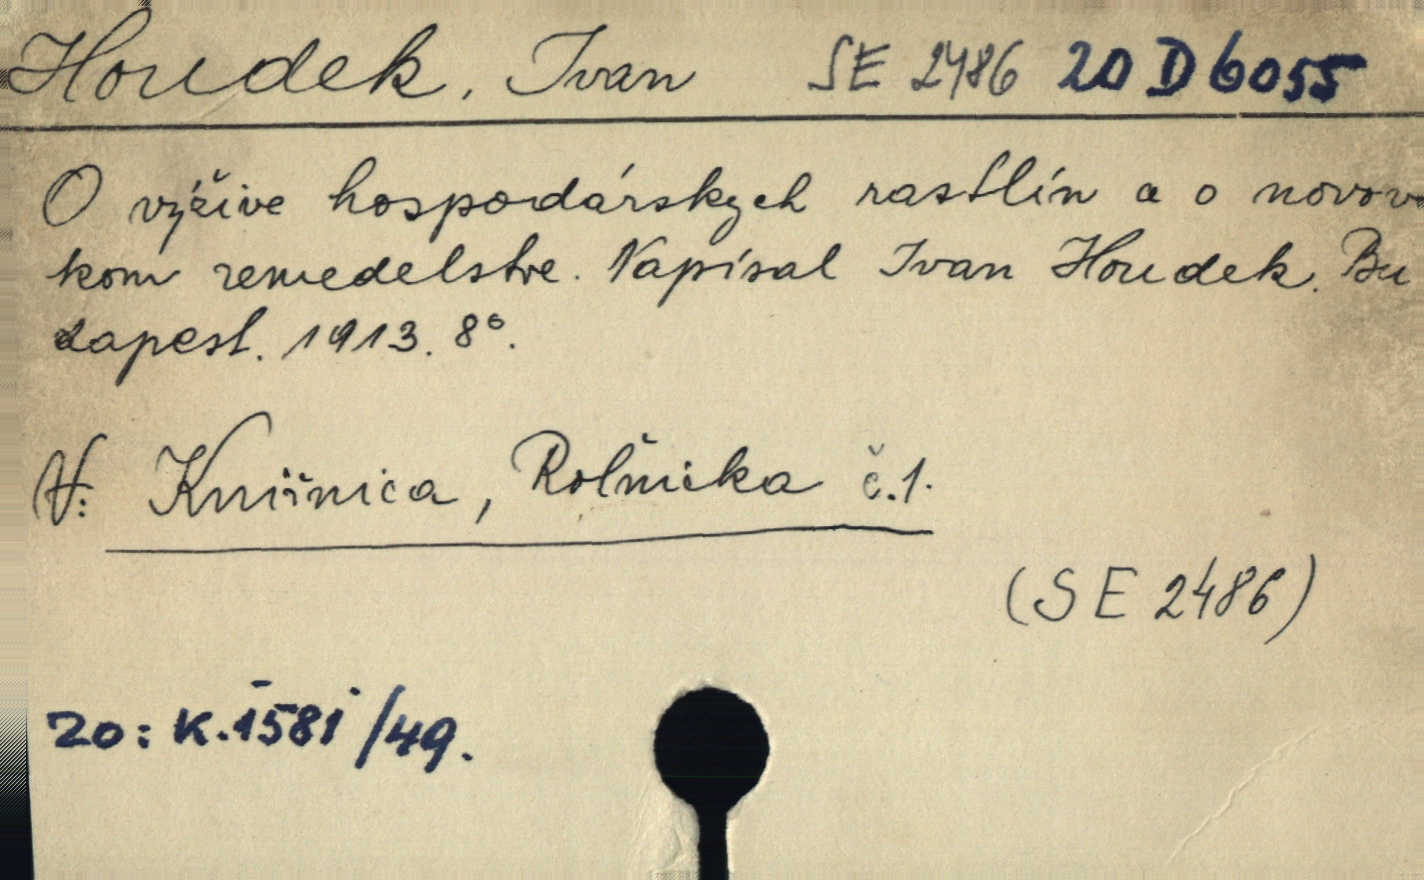 Houdek, Ivan SE 2486 20 D 6055
O výžive hospodárskych rastlín a o novov
kom remedelstve. Napísal Ivan Houdek. Bu
dapest. 1913. 8°.
Knižnica, Rolnicka č.1.
(SE 2486)
20: K.1581/49.